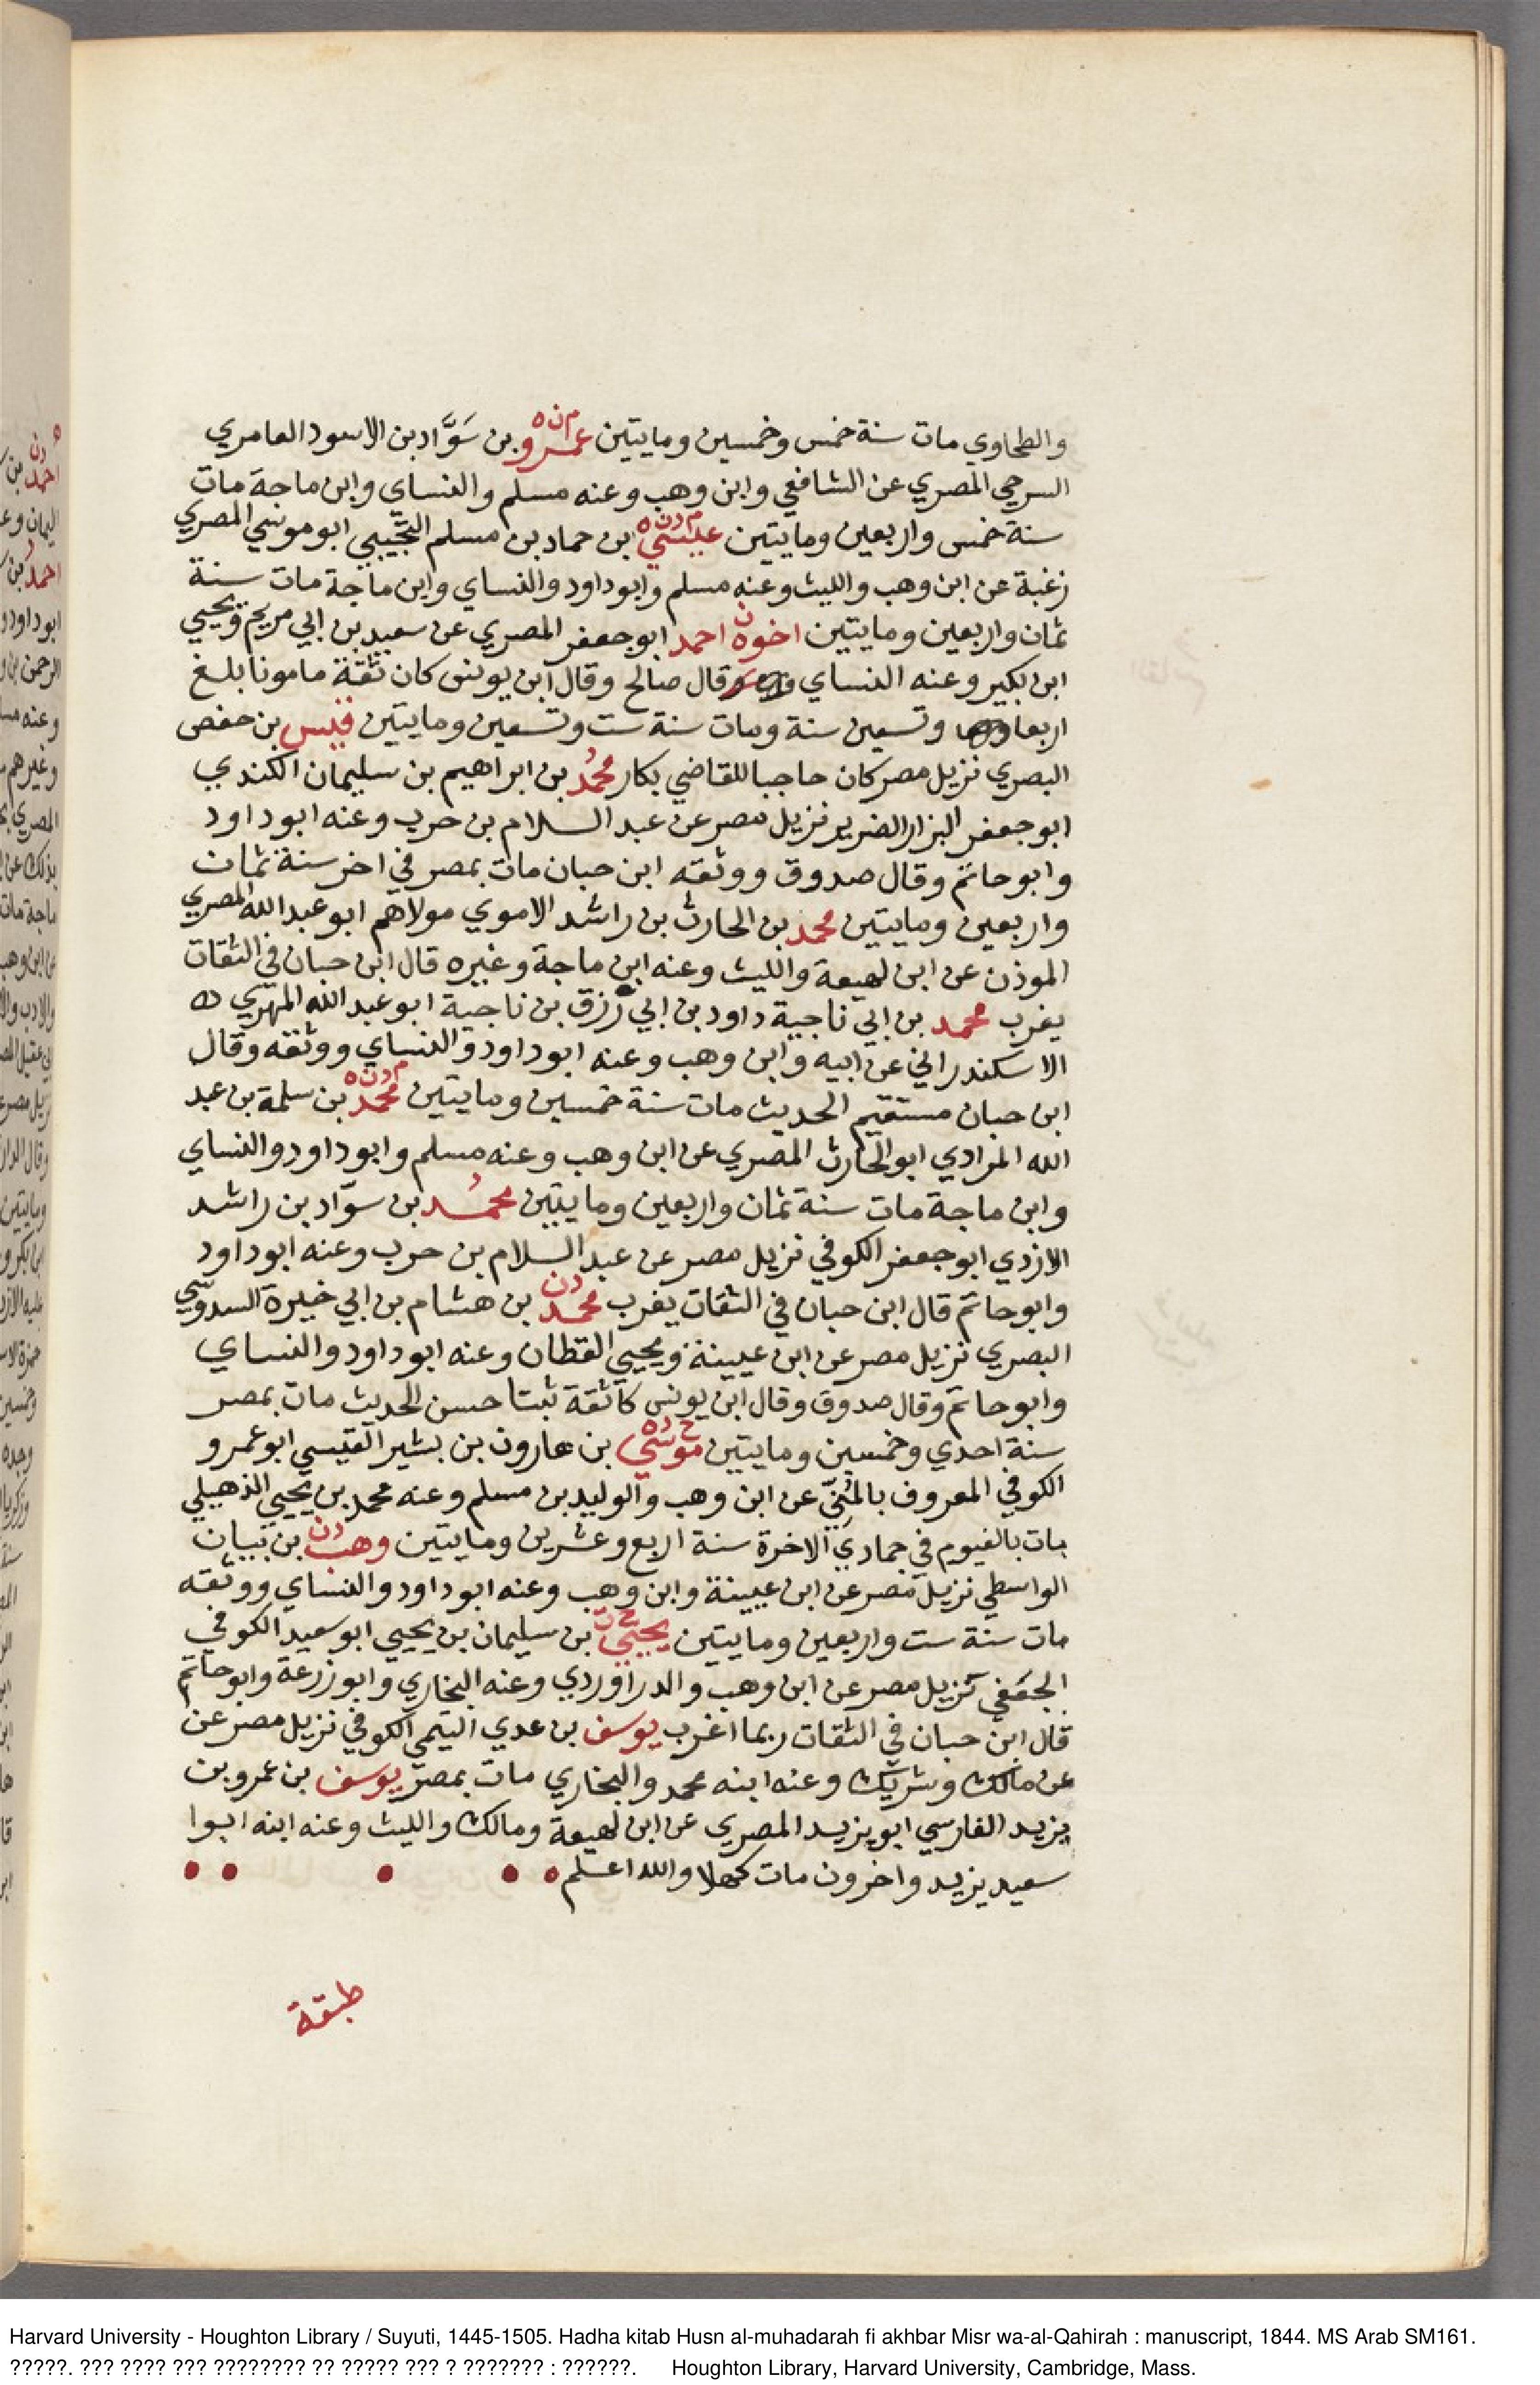 والطحاوي مات سنة خمس وخمسين ومايتين عمرو بن سَوَّاد بن الاسود العامري
السرحي المصري عن الشافعي وابن وهب وعنه مسلم والنساي وابن ماجة مات
سنة خمس واربعين ومايتين عيسي بن حماد بن مسلم التجيبي ابو موسي المصري
زغبة عن ابن وهب والليث وعنه مسلم وابو داود والنساي وابن ماجة مات سنة
ثمان واربعين ومايتين اخوه احمد ابو جعفر المصري عن سعيد بن ابي مريم ويحيي
ابن بكير وعنه النساي وقال صالح وقال ابن يونس كان ثقة مامونا بلغ
اربعا وتسعين سنة ومات سنة ست وتسعين ومايتين قيس بن حفص
البصري نزيل مصر كان حاجبا للقاضي بكار محمد بن ابراهيم بن سليمان الكندي
ابو جعفر البزار الضرير نزيل مصر عن عبد السلام بن حرب وعنه ابو داود
وابو حاتم وقال صدوق ووثقه ابن حبان مات بمصر في اخر سنة ثمان
واربعين ومايتين محمد بن الحارث بن راشد الاموي مولاهم ابو عبد الله المصري
الموذن عن ابن لهيعة والليث وعنه ابن ماجة وغيره قال ابن حبان في الثقات
يغرب محمد بن ابي ناجية داود بن ابي رزق بن ناجية ابو عبد الله المهري
الاسكندراني عن ابيه وابن وهب وعنه ابو داود والنساي ووثقه وقال
ابن حبان مستقيم الحديث مات سنة خمسين ومايتين محمد بن سلمة بن عبد
الله المرادي ابو الحارث المصري عن ابن وهب وعنه مسلم وابو داود والنساي
وابن ماجة مات سنة ثمان واربعين ومايتين محمد بن سوّاد بن راشد
الازدي ابو جعفر الكوفي نزيل مصر عن عبد السلام بن حرب وعنه ابو داود
وابو حاتم قال ابن حبان في الثقات يغرب محمد بن هشام بن ابي خيرة السدوسي
البصري نزيل مصر عن ابن عيينة ويحيي القطان وعنه ابو داود والنساي
وابو حاتم وقال صدوق وقال ابن يونس كا ثقة ثبتا حسن الحديث مات بمصر
سنة احدي وخمسين ومايتين موسي بن هارون بن بشير القيسي ابو عمرو
الكوفي المعروف بالبُنّي عن ابن وهب والوليد بن مسلم وعنه محمد بن يحيي الذهيلي
مات بالفيوم في جمادي الاخرة سنة اربع وعشرين ومايتين وهب بن بيان
الواسطي نزيل مصر عن ابن عيينة وابن وهب وعنه ابو داود والنساي ووثقه
مات سنة ست واربعين ومايتين يحيي بن سليمان بن يحيي ابو سعيد الكوفي
الجعفي نزيل مصر عن ابن وهب والدراوردي وعنه البخاري وابو زرعة وابو حاتم
قال ابن حبان في الثقات ربما اغرب يوسف بن عدي التيمي الكوفي نزيل مصر عن
عن مالك وشريك وعنه ابنه محمد والبخاري مات بمصر يوسف بن عمرو بن
يزيد الفارسي ابو يزيد المصري عن ابن لهيعة ومالك والليث وعنه ابنه ابوا
سعيد يزيد واخرون مات كهلا والله اعلم
طبقة
Harvard University - Houghton Library / Suyuti, 1445-1505. Hadha kitab Husn al-muhadarah fi akhbar Misr wa-al-Qahirah : manuscript, 1844. MS Arab SM161.
?????. ??? ???? ??? ???????? ?? ????? ??? ? ??????? : ??????. Houghton Library, Harvard University, Cambridge, Mass.